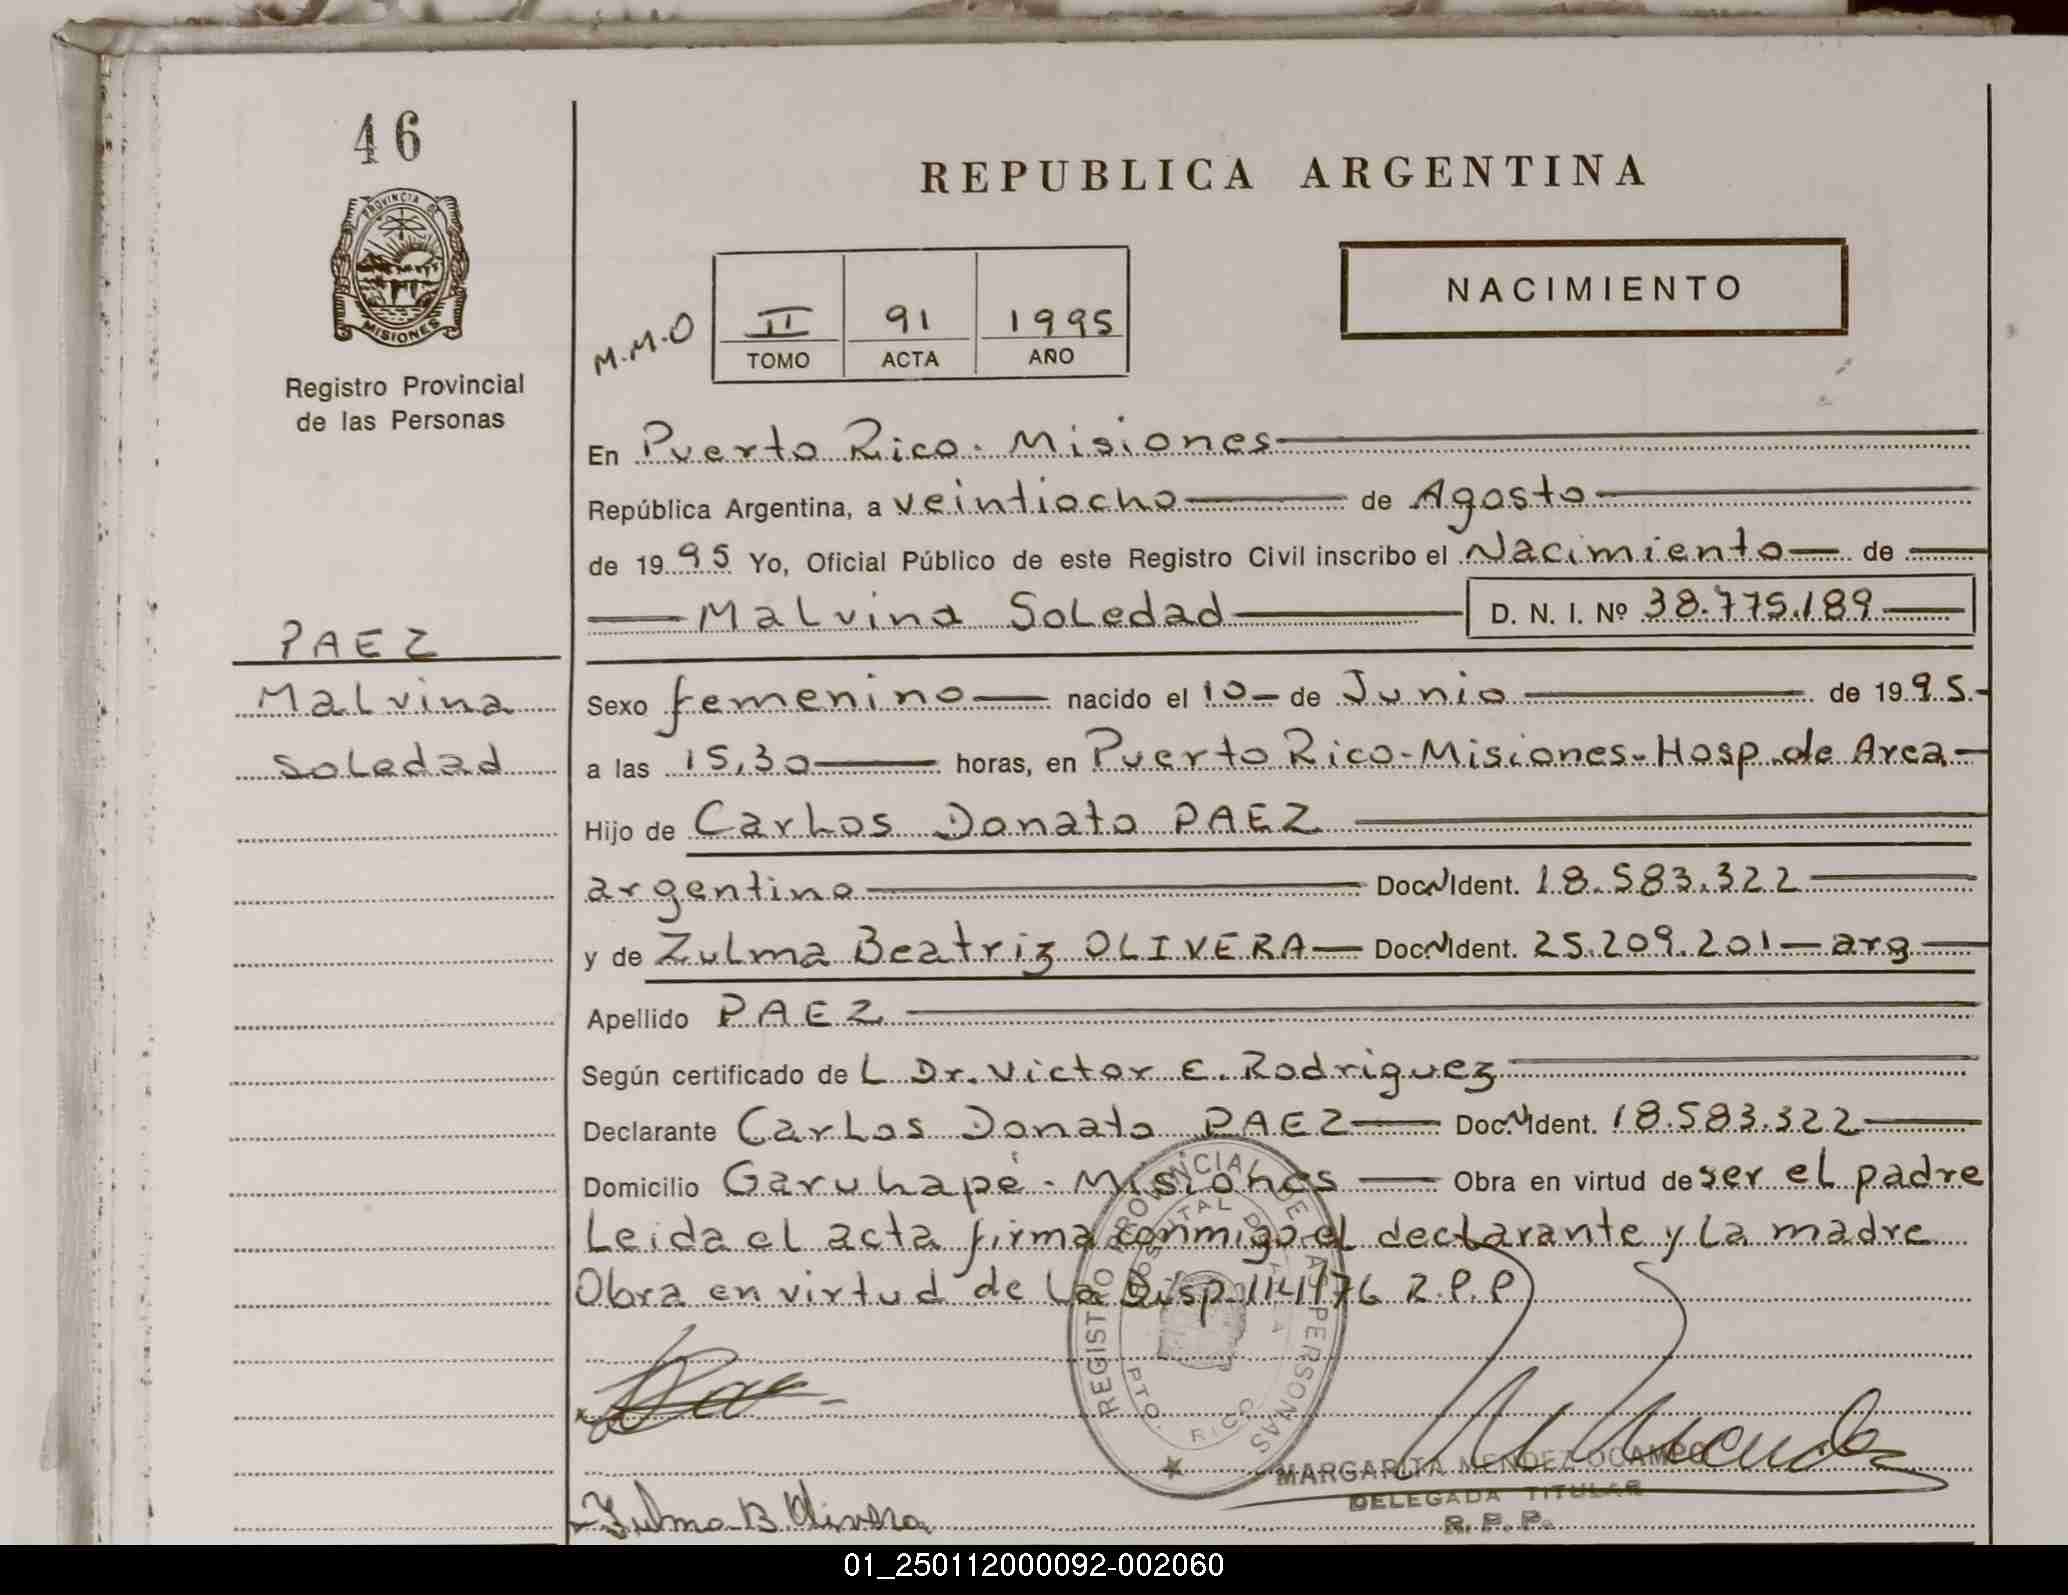 46
PROVINCIA DE
MISIONES
Registro Provincial
de las Personas
PAEZ
Malvina
Soledad
REPUBLICA ARGENTINA
M.M.O
II 91 1995
TOMO ACTA AÑO
NACIMIENTO
En Puerto Rico - Misiones
República Argentina, a veintiocho de Agosto
de 1995 Yo, Oficial Público de este Registro Civil inscribo el Nacimiento de
Malvina Soledad D. N. I. Nº 38.775.189
Sexo femenino nacido el 10 de Junio de 1995.
a las 15,30 horas, en Puerto Rico - Misiones - Hosp. de Area
Hijo de Carlos Donato PAEZ
argentino Doc. N Ident. 18.583.322
y de Zulma Beatriz OLIVERA Doc. N Ident. 25.209.201 - arg
Apellido PAEZ
Según certificado de L Dr. Victor E. Rodriguez
Declarante Carlos Donato PAEZ Doc. N Ident. 18.583.322
Domicilio Garuhapé - Misiones Obra en virtud de ser el padre
Leida el acta firma conmigo el declarante y la madre
Obra en virtud de la Disp 114/76 R.P.P
REGISTRO PROVINCIAL DE LAS PERSONAS
HOSPITAL DE AREA
PTO. RICO
MARGARITA MENDEZ OCAMPO
DELEGADA TITULAR
R. P. P.
Zulma B. Olivera
01_250112000092-002060